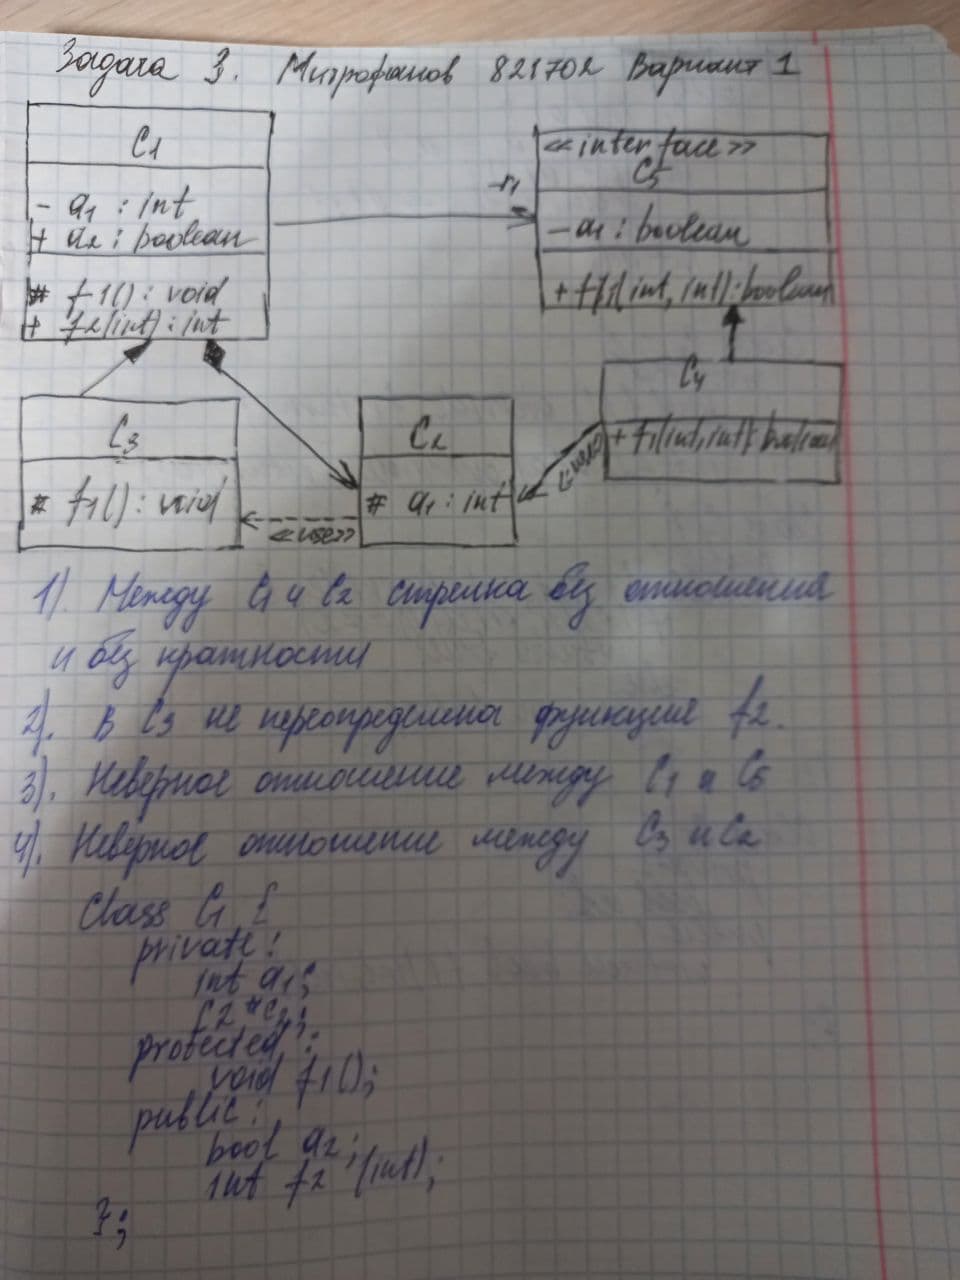 Задача 3. Митрофанов 821702 Вариант 1
C1
- a1 : int
+ a2 : boolean
# f1() : void
+ f2(int) : int
-r1
<<interface>>
C5
- a1 : boolean
+ f1(int, int) : boolean
C3
# f1() : void
C2
# a1 : int
C4
+ f1(int, int) : boolean
<<use>>
1). Между C1 и C2 стрелка без отношения
и без кратности
2). В C3 не переопределена функция f2.
3). Неверное отношение между C1 и C5
4). Неверное отношение между C3 и C2
Class C1 {
private:
int a1;
C2 *c2;
protected :
void f1();
public :
bool a2;
int f2 (int);
};